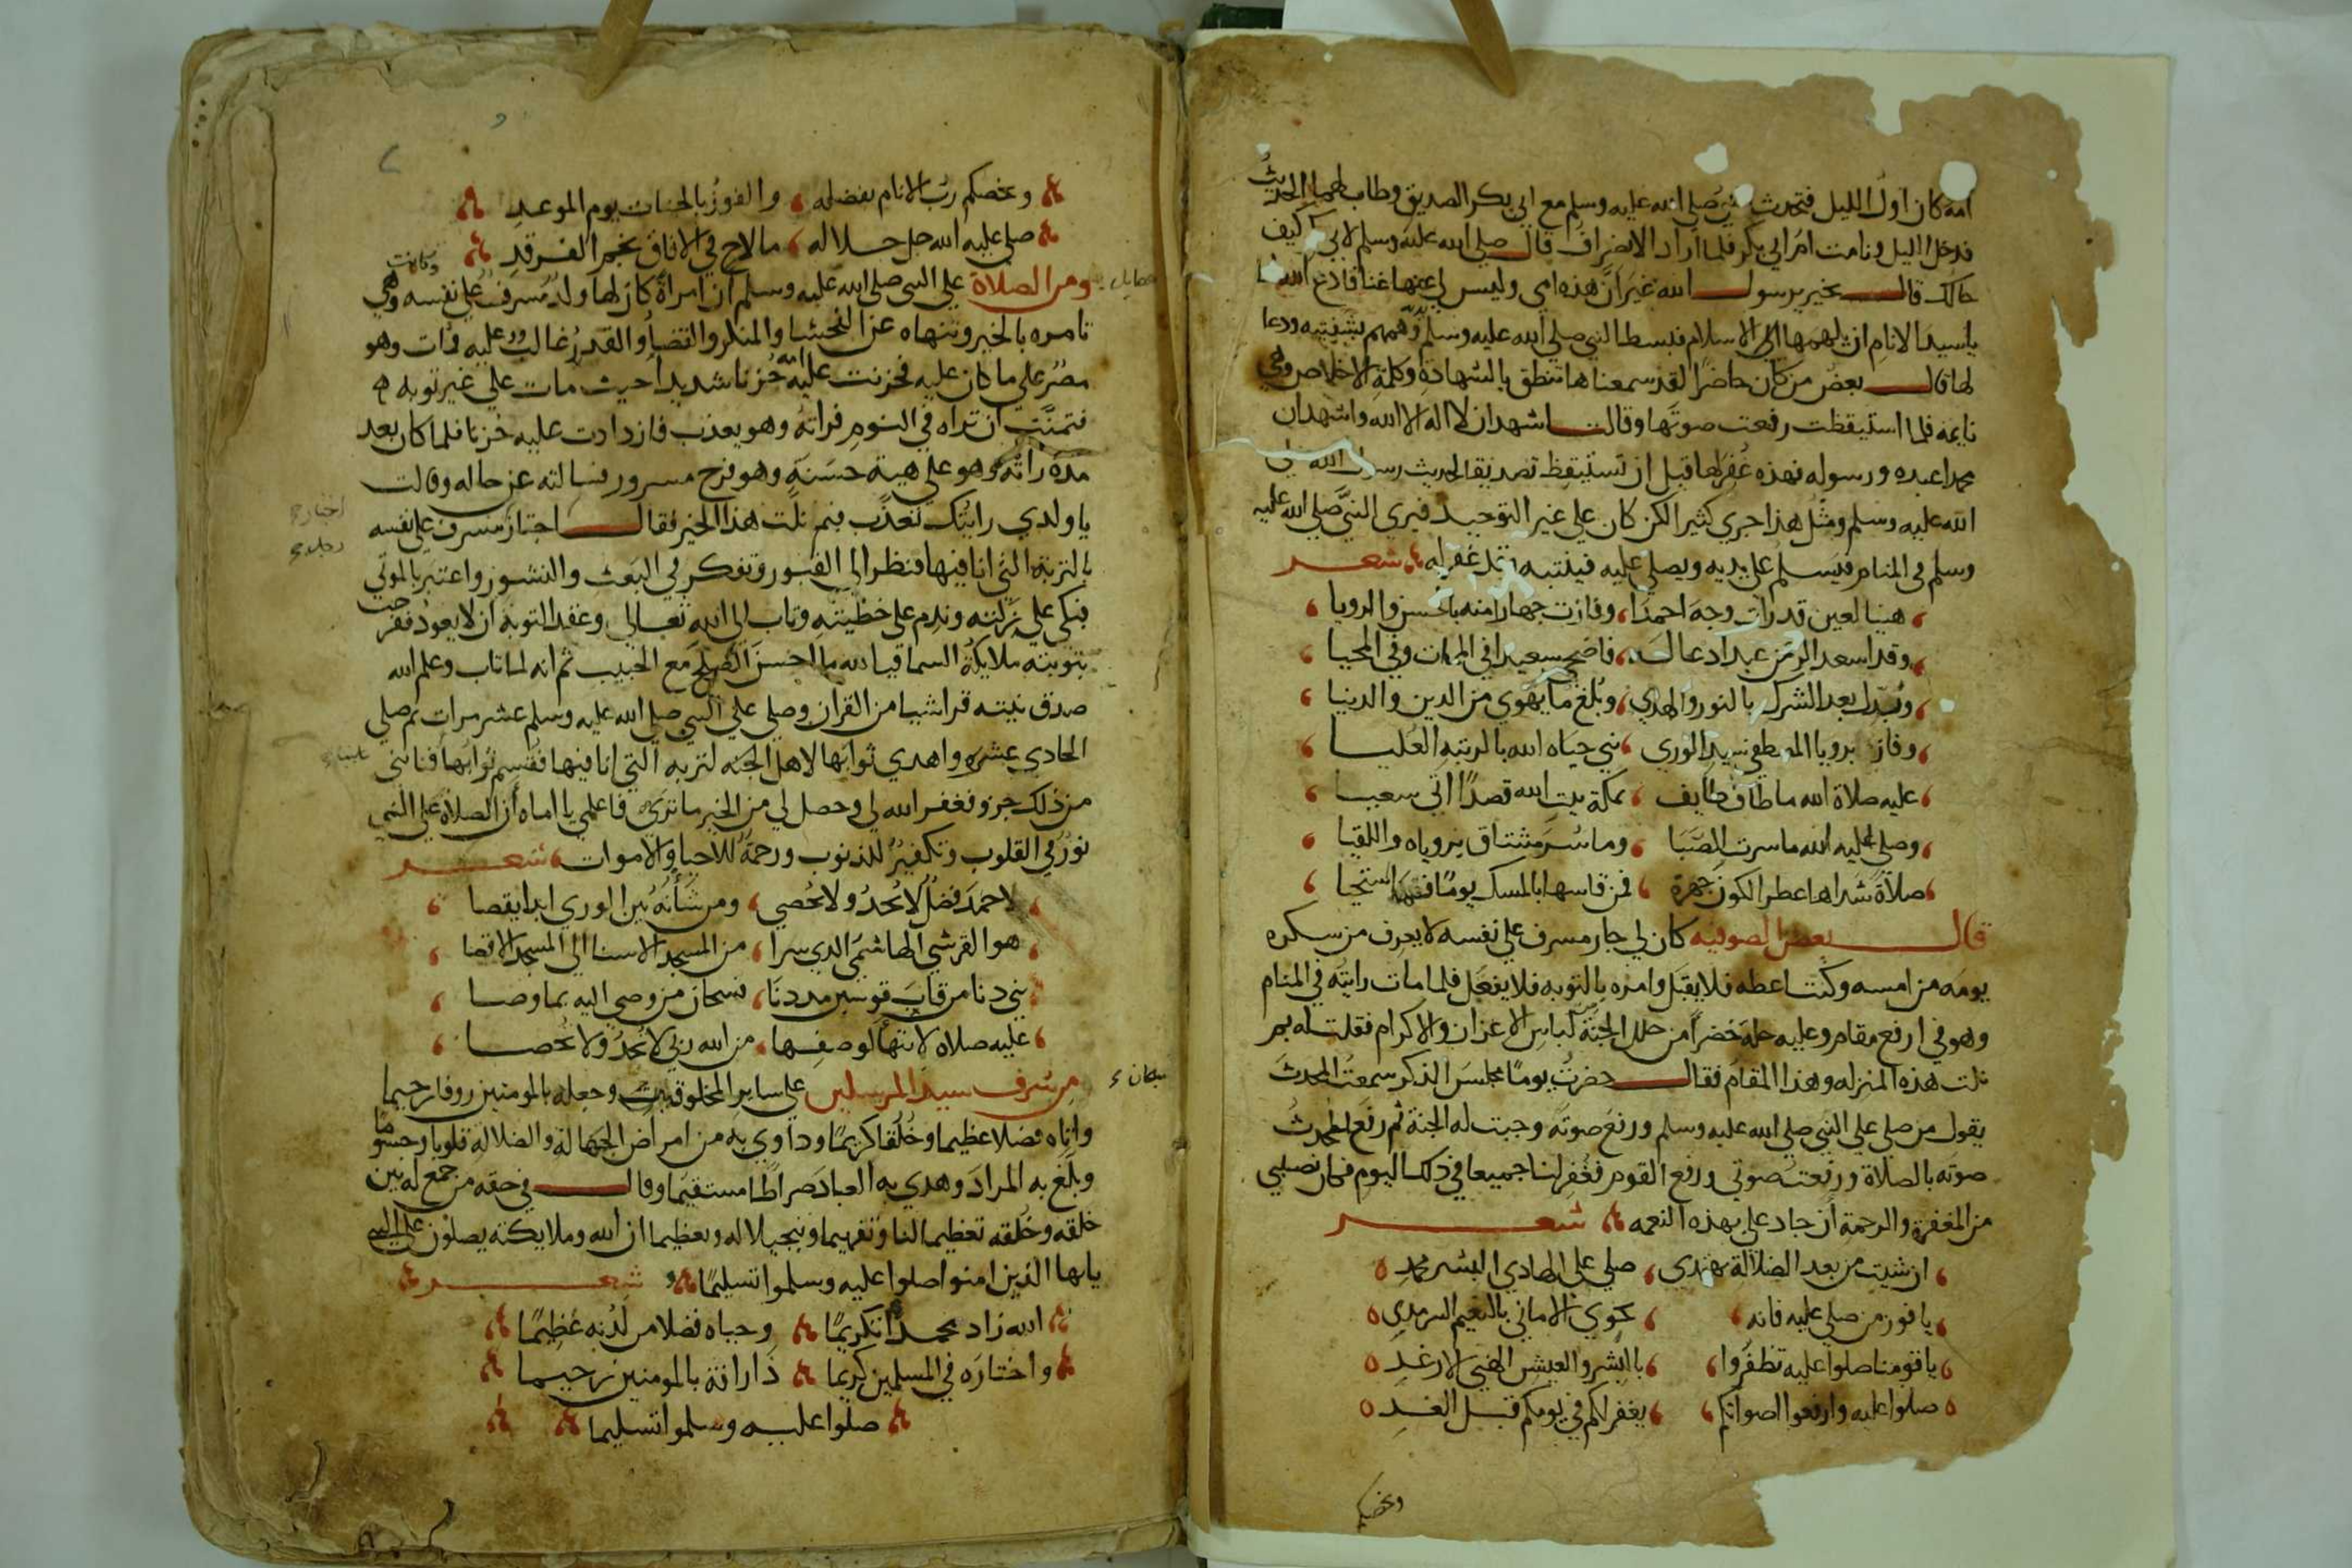 امه كان اول الليل فتحدث صلى الله عليه وسلم مع ابي بكر الصديق وطاب لهما الحديث
فدخل الليل ونامت ام ابي بكر فلما اراد الانصراف قال صلى الله عليه وسلم لابي كيف
حالك قال بخير يرسول الله غير ان هذه امي وليس لي عنها غنا فادع الله
ياسيد الانام ان يلهمها الى الاسلام فبسط النبي صلى الله عليه وسلم وهمهم بشفتيه ودعا
لها قال بعض من كان حاضرا لقد سمعناها تنطق بالشهادة وكلمة الاخلاص وهي
نايمه فلما استيقظت رفعت صوتها وقالت اشهد ان لا اله الا الله واشهد ان
محمدا عبده ورسوله فهذه غفر لها قبل ان تستيقظ تصديقا لحديث رسول الله صلى
الله عليه وسلم ومثل هذا جري كثير الكن كان علي غير التوحيد فيري النبي صلى الله عليه
وسلم في المنام فيسلم على يديه ويصلي عليه فينتبه وقد غفر له شعر
هنيا لعين قد رات وجه احمدا وفازت جهارا منه بالحسن والرويا
وقد اسعد الرحمن عبدا دعا له فاضحي سعيدا في الممات وفي المحيا
وبدل بعد الشرك بالنور والهدي وبلغ ما يهوي من الدين والدنيا
وفاز برويا المصطفي سيد الوري نبي حباه الله بالرتبه العليا
عليه صلاة الله ما طاف طايف بمكة بيت الله قصدا اتي سعيا
وصلي عليه الله ما سرت الصبا وما سر مشتاق برؤياه واللقيا
صلاة شذاها عطر الكون جهرة فمن قاسها بالمسك يوما فقد استحيا
قال بعض الصوفيه كان لي جار مسرف علي نفسه لا يعرف من سكره
يومه من امسه وكنت اعظه فلا يقبل وامره بالتوبه فلا يفعل فلما مات رايته في المنام
وهو في ارفع مقام وعليه حلة خضرا من حلل الجنة لباس الاعزاز والاكرام فقلت له بم
نلت هذه المنزله وهذا المقام فقال حضرت يوما مجلس الذكر سمعت المحدث
يقول من صلي علي النبي صلى الله عليه وسلم ورفع صوته وجبت له الجنة ثم رفع المحدث
صوته بالصلاة ورفعت صوتي ورفع القوم فغفر لنا جميعا في ذلك اليوم فكان نصيبي
من المغفرة والرحمة ان جاد علي بهذه النعمه شعر
ان شيت من بعد الضلالة تهتدي صلي على الهادي البشر محمد
يا فوز من صلي عليه فانه يحوي الاماني بالنعيم السرمدي
يا قومنا صلوا عليه تظفروا بالبشر والعيش الهني الارغد
صلوا عليه وارفعوا اصواتكم يغفر لكم في يومكم قبل الغد
ويخصكم
ويخصكم رب الانام بفضله والفوز بالجنات يوم الموعد
صلى عليه الله جل جلاله ما لاح في الافاق نجم الفرقد
ومن الصلاة علي النبي صلى الله عليه وسلم ان امراة كان لها ولد مسرف علي نفسه وهي
وكانت
تامره بالخير وتنهاه عن الفحشا والمنكر والقضا والقدر غالب عليه فمات وهو
مصر علي ما كان عليه فحزنت عليه امه حزنا شديدا حيث مات علي غير توبه
فتمنت ان تراه في النوم فراته وهو يعذب فازدادت عليه حزنا فلما كان بعد
مدة راته وهو على هية حسنة وهو فرح مسرور فسالته عن حاله وقالت
يا ولدي رايتك تعذب فبم نلت هذا الخير فقال اجتاز مسرف علي نفسه
بالتربة التي انا فيها فنظر الي القبور وتفكر في البعث والنشور واعتبر بالموتي
فبكى علي زلته وندم على خطيئته وتاب الي الله تعالي وعقد التوبه ان لا يعود ففرحت
بتوبته ملايكة السما قيا لله ما احسن الصلح مع الحبيب ثم انه لما تاب وعلم الله
صدق نيته قرا شيا من القران وصلي علي النبي صلى الله عليه وسلم عشر مرات ثم صلي
الحادي عشر واهدي ثوابها لاهل الجنه لتربه التي انا فيها فقسم ثوابها فنابني
من ذلك جزو فغفر الله لي وحصل لي من الخير ما تري فاعلمي يا اماه ان الصلاة علي النبي
نور في القلوب وتكفير للذنوب ورحمة للاحيا والاموات شعر
لاحمد فضل لا يحد ولا يحصي ومن شانه بين الوري ابدا يقصا
هو القرشي الهاشمي الذي سرا من المسجد الاسنا الي المسجد الاقصا
نبي دنا من قاب قوسين مددنا فسبحان من وصي اليه بما وصا
عليه صلاه لا انتها لوصفها من الله ربي لا تحد ولا تحصا
من شرف سيد المرسلين علي ساير المخلوقين وجعله بالمومنين روفا رحيما
واتاه فضلا عظيما وخلقا كريما وداوي به من امراض الجهالة والضلالة قلوبا وجسوما
وبلغ به المراد وهدي به العباد صراطا مستقيما وقال في حقه من جمع له بين
خلقه وخلقه تعظيما لنا وتفهيما وتبجيلا له وتعظيما ان الله وملايكته يصلون علي النبي
يايها الذين امنوا صلوا عليه وسلموا تسليما شعر
الله زاد محمدا تكريما وحباه فضلا من لدنه عظيما
واختاره في المسلمين كريما ذا رافة بالمومنين رحيما
صلوا عليه وسلموا تسليما